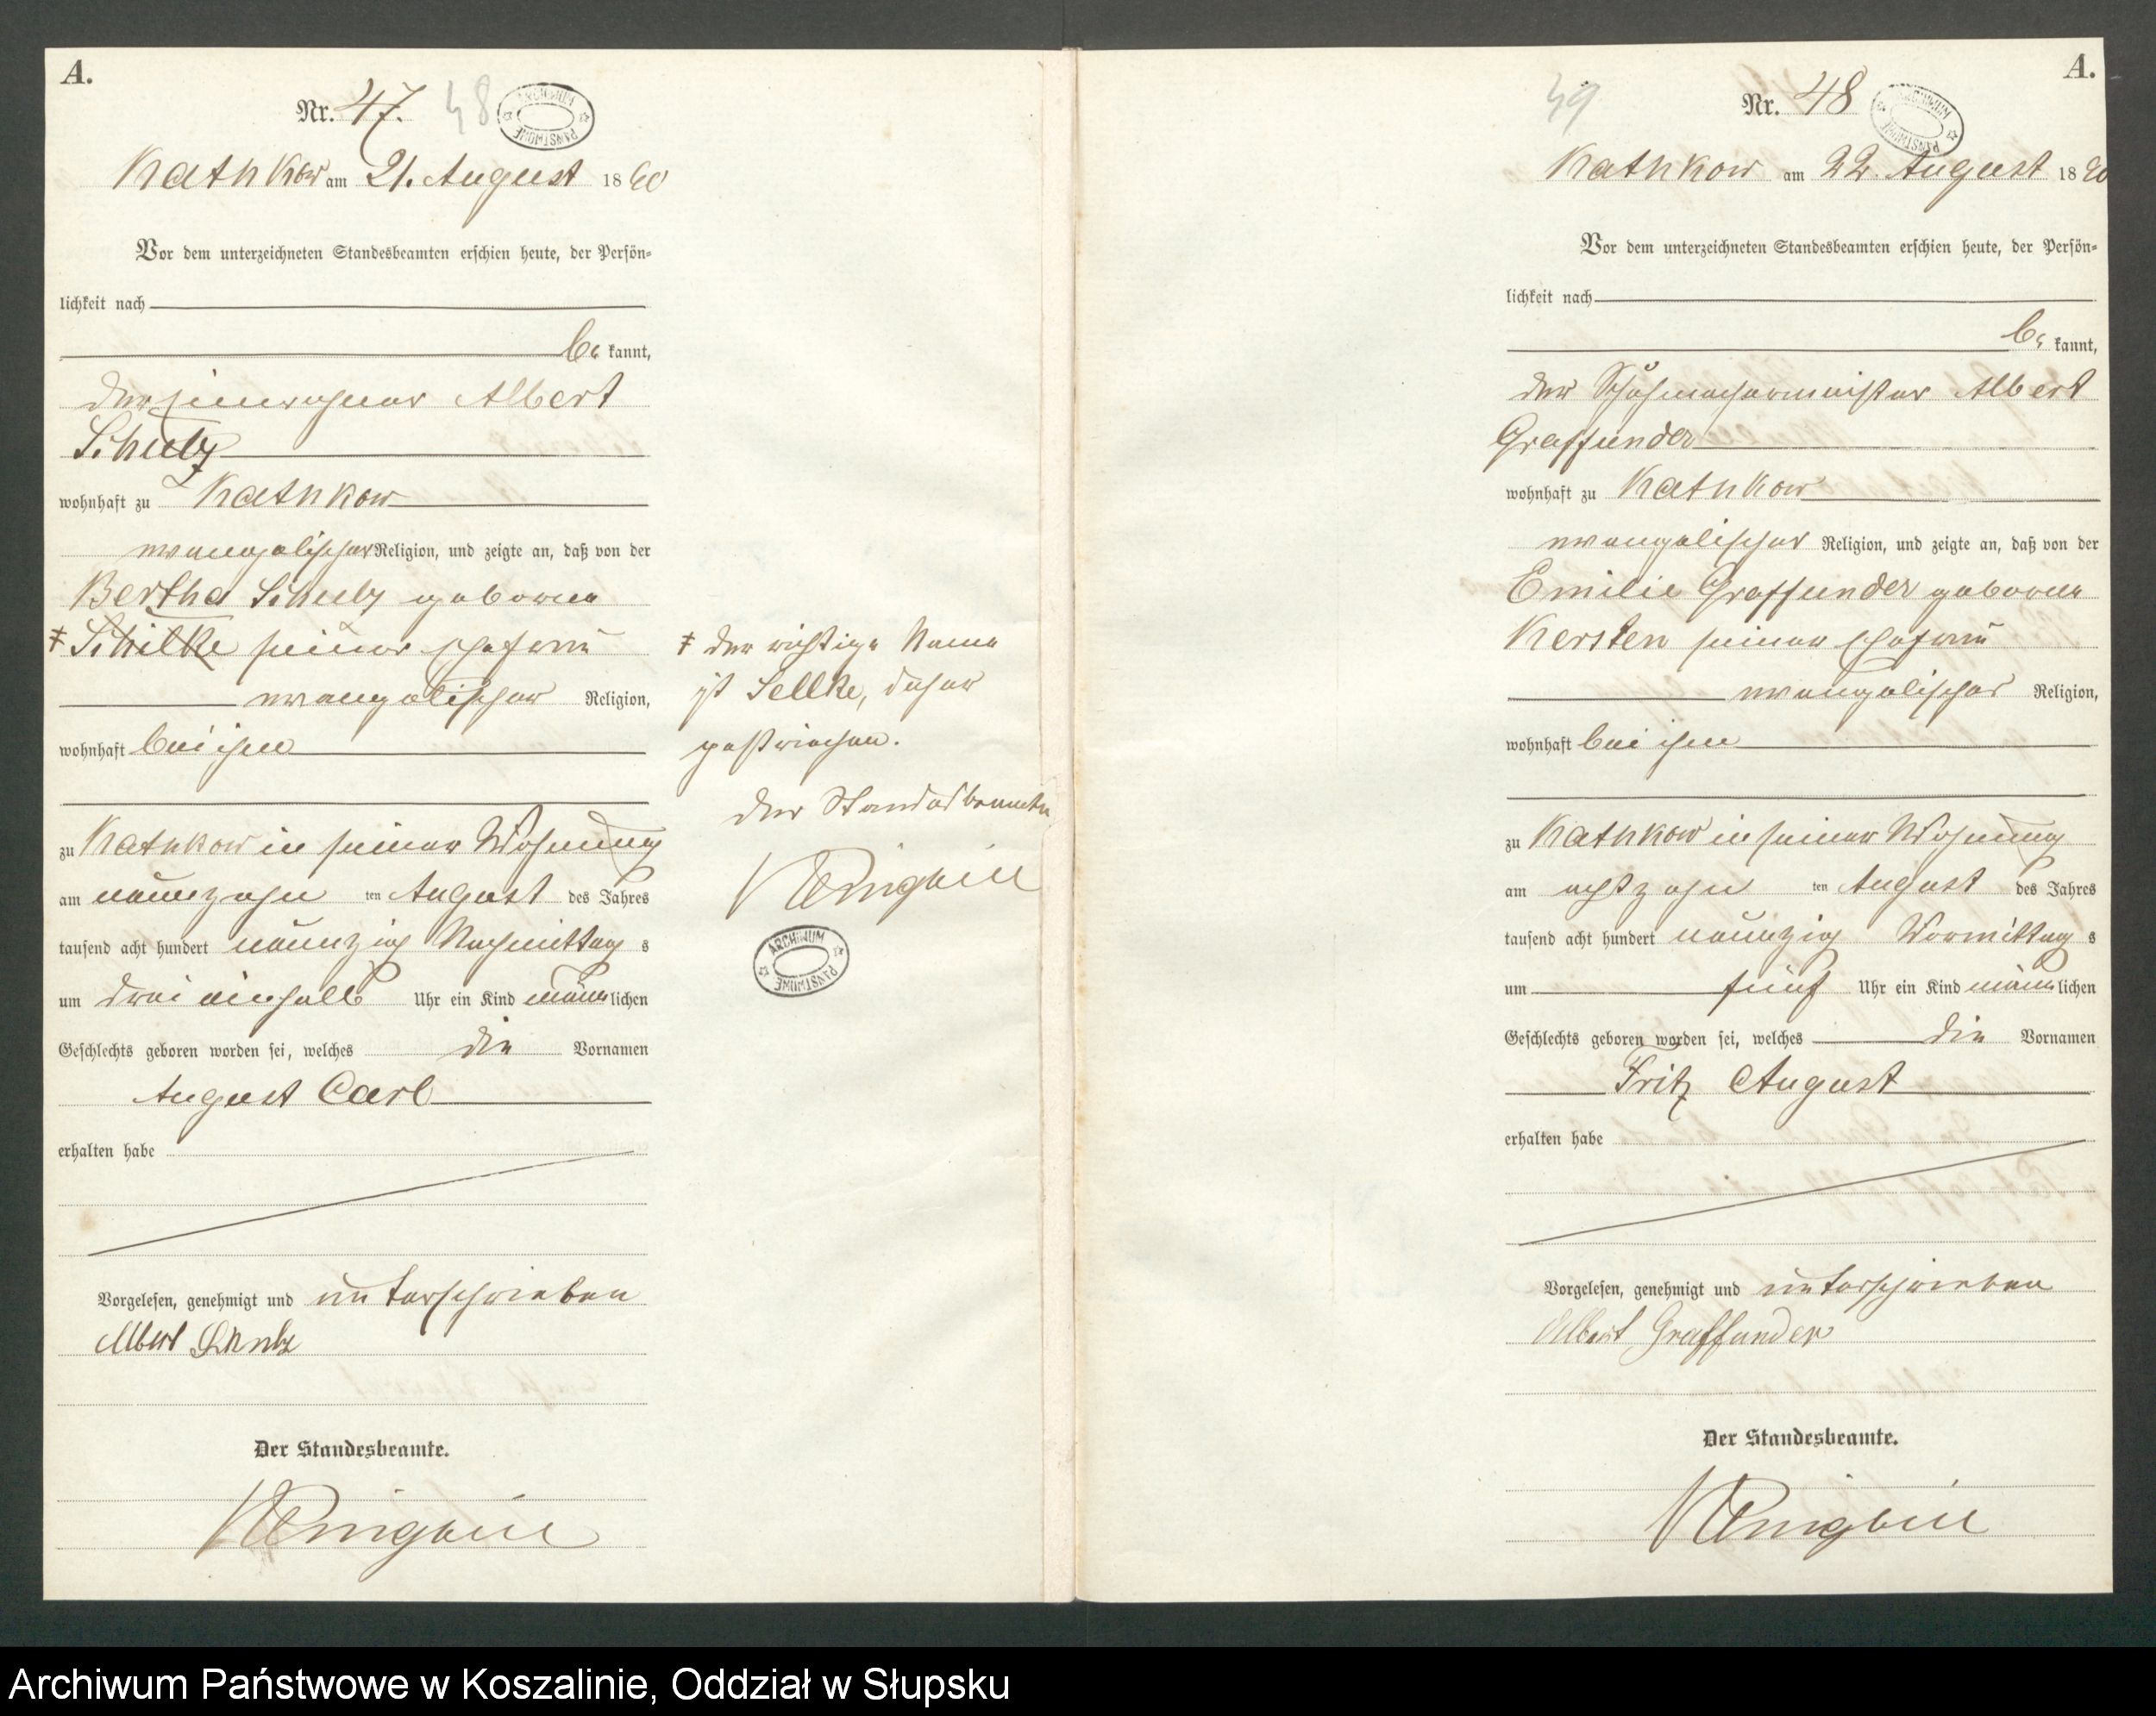 A.
Nr. 47. 48
ARCHIWUM PAŃSTWOWE
Kathkow am 21. August 1890
Vor dem unterzeichneten Standesbeamten erschien heute, der Persön-
lichkeit nach
be kannt,
der Einwohner Albert
Schulz
wohnhaft zu Kathkow
evangelischer Religion, und zeigte an, daß von der
Bertha Schulz geborene
ǂ Schilke seiner Ehefrau
evangelischer Religion,
wohnhaft bei ihm
zu Kathkow in seiner Wohnung
am neunzehn ten August des Jahres
tausend acht hundert neunzig Nachmittag s
um drei einhalb Uhr ein Kind männ lichen
Geschlechts geboren worden sei, welches die Vornamen
August Carl
erhalten habe
Vorgelesen, genehmigt und unterschrieben
Albert Schulz
Der Standesbeamte.
ǂ der richtige Name
ist Sellke, daher
gestrichen.
Der Standesbeamte
ARCHIWUM PAŃSTWOWE
A.
49 Nr. 48
ARCHIWUM PAŃSTWOWE
Kathkow am 22. August 1890
Vor dem unterzeichneten Standesbeamten erschien heute, der Persön-
lichkeit nach
be kannt,
der Schuhmachermeister Albert
Graffunder
wohnhaft zu Kathkow
evangelischer Religion, und zeigte an, daß von der
Emilie Graffunder geborene
Kersten seiner Ehefrau
evangelischer Religion,
wohnhaft bei ihm
zu Kathkow in seiner Wohnung
am achtzehn ten August des Jahres
tausend acht hundert neunzig Vormittag s
um fünf Uhr ein Kind männ lichen
Geschlechts geboren worden sei, welches die Vornamen
Fritz August
erhalten habe
Vorgelesen, genehmigt und unterschrieben
Albert Graffunder
Der Standesbeamte.
Archiwum Państwowe w Koszalinie, Oddział w Słupsku